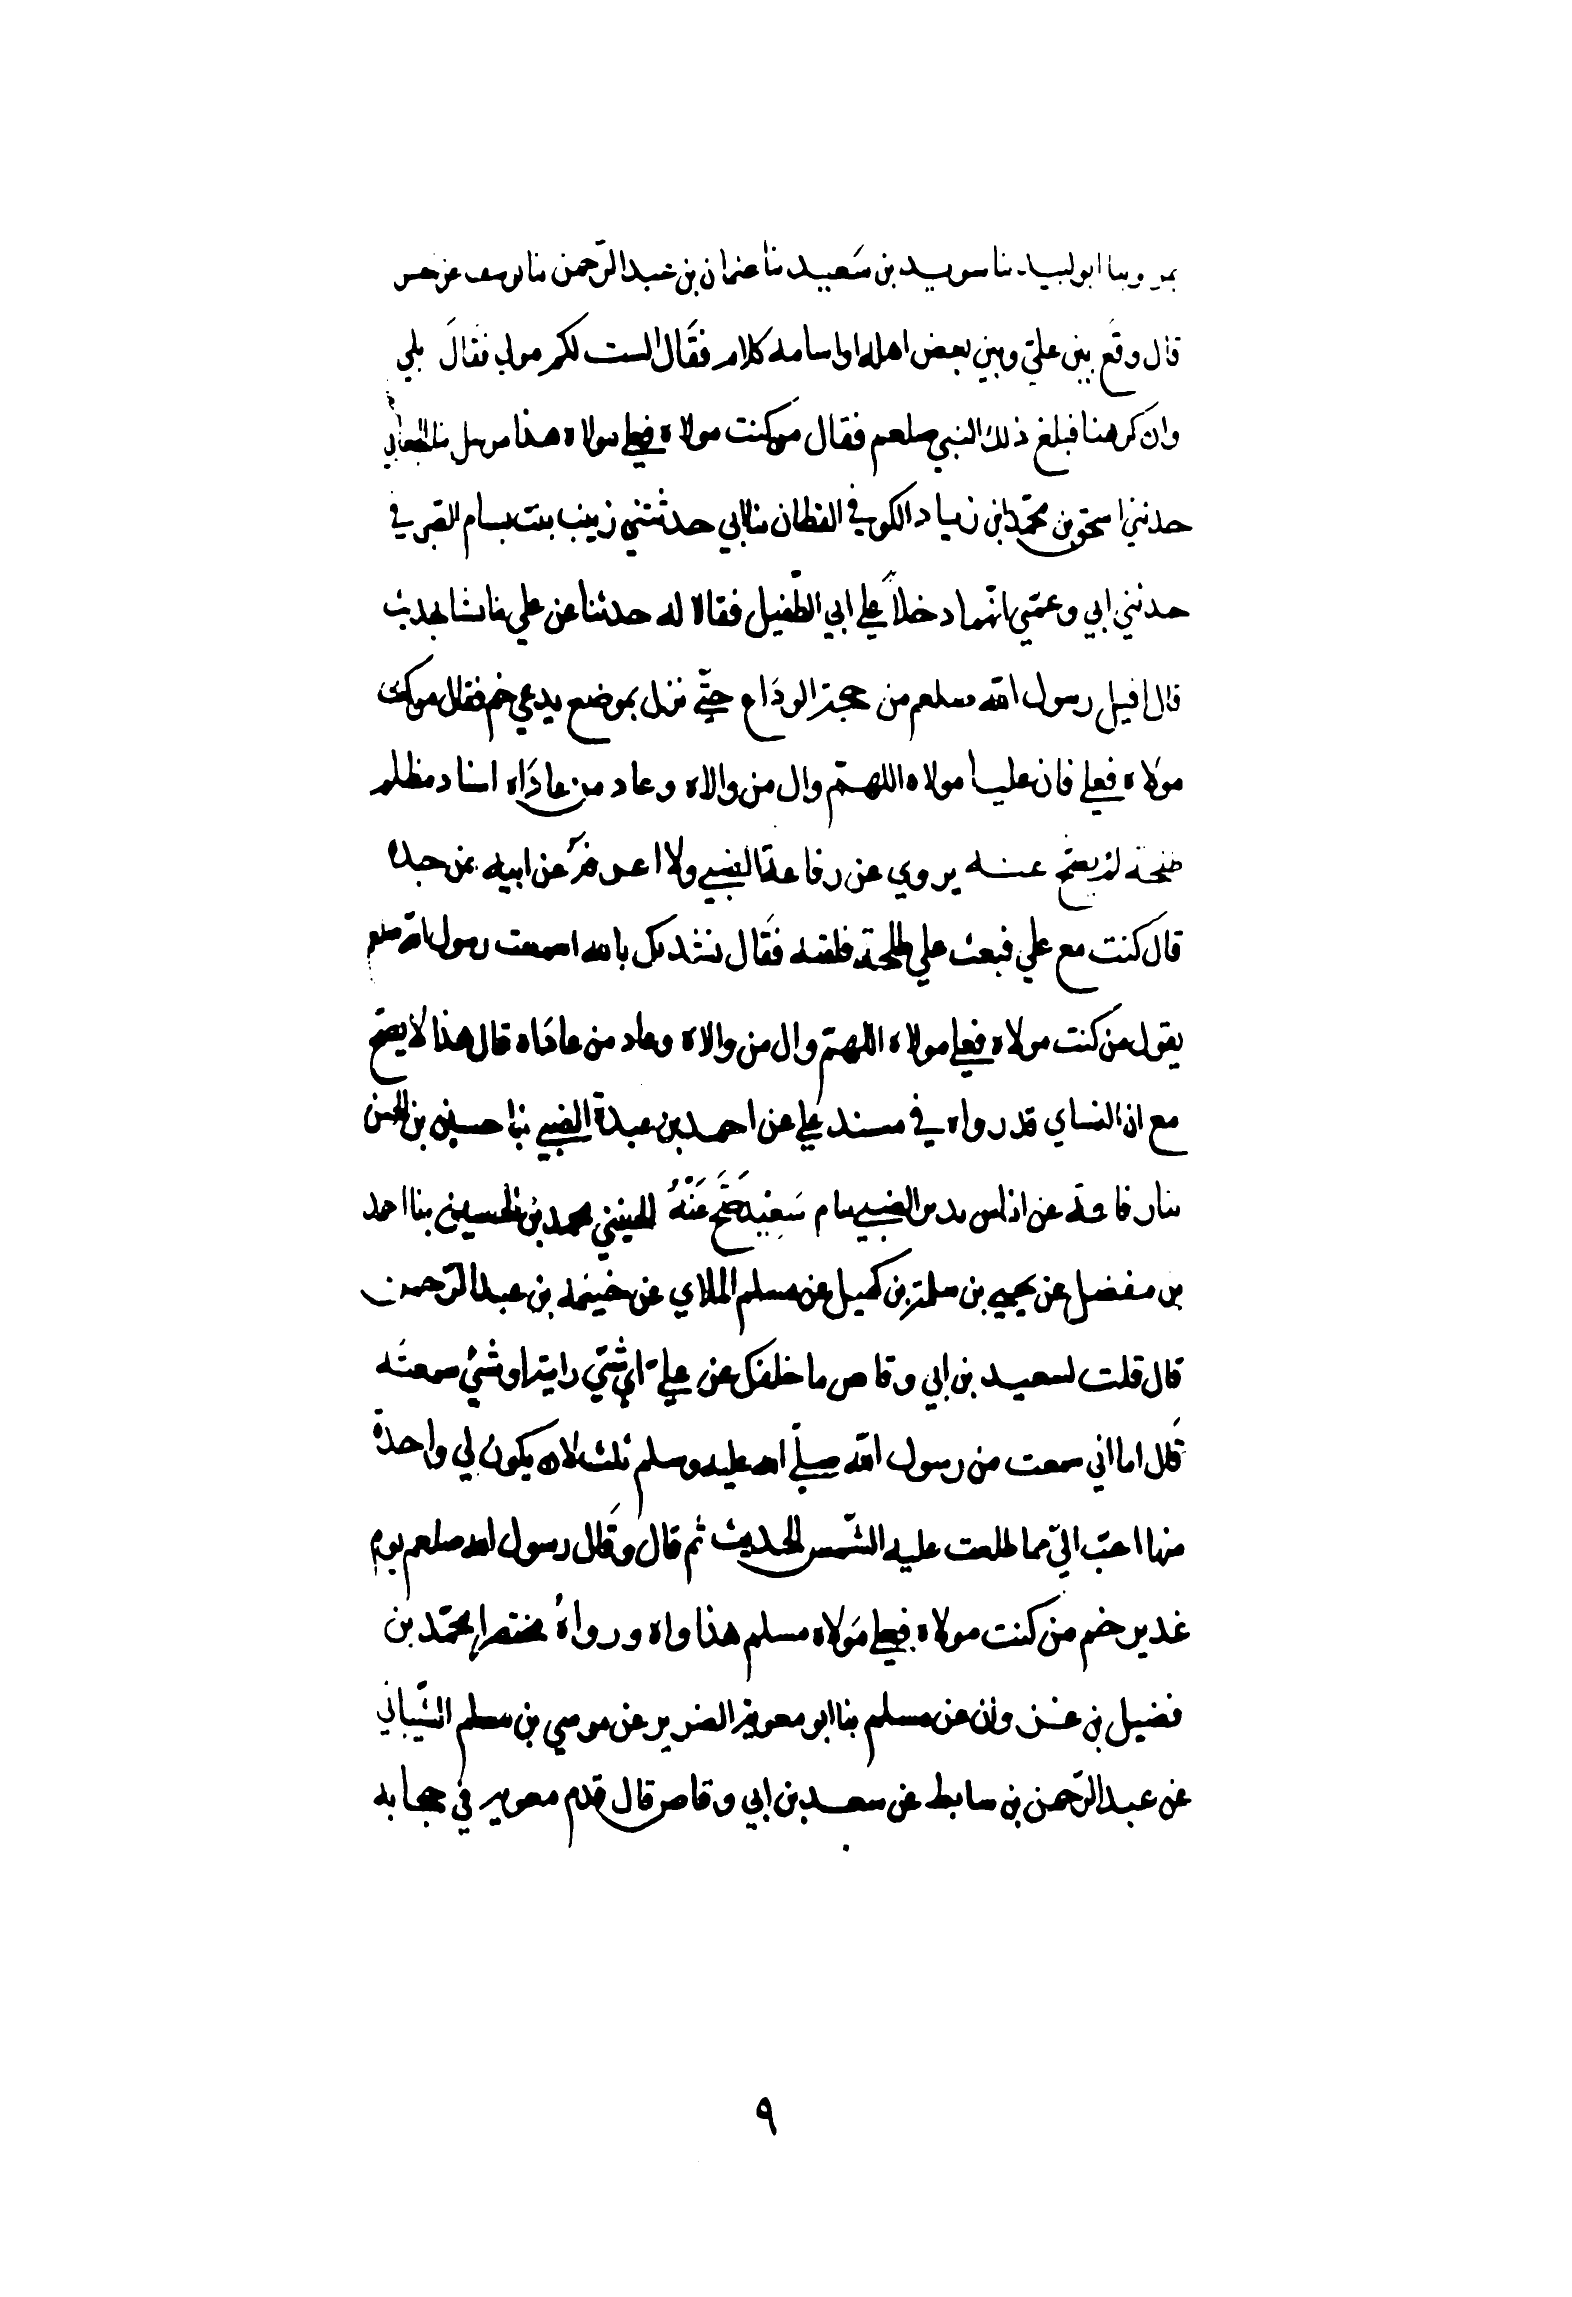 ابو لبيد نا سويد بن سَعيد نا عثمان بن عبد الرّحمن نا يوسف عن
قال وقع بين علي وبين بعض اهله او اسامه كلام فقال الست لكم مولي فقال بلي
وان كرهنا فبلغ ذلك النبي صلعم فقال من كنت مولاه فعلي مولاه هذا مرسل
حدثني اسحق بن محمّد ابن زياد الكوفي القطان نا ابي حدثتني زينب بنت بسام الصيرفي
حدثني ابي وعمّي انّهما دخلا علي ابي الطّفيل فقالا له حدثنا عن علي فانشا يحديث
قال اقبل رسول الله صلعم من حجة الوداع حتّي نزل بموضع يدعي خم فقال من كنت
مولاه فعلي فان عليا مولاه اللهمّ وال من والاه وعاد من عاداه اسناد مظلم
طلحة لم يصحّ عنه يروي عن رفاعة الضبي ولا اعرفه عن ابيه عن جده
قال كنت مع علي فبعث علي طلحة فلقيه فقال نشدتك بالله اسمعت رسول الله صلعم
يقول من كنت مولاه فعلي مولاه اللهمّ وال من والاه وعاد من عاداه قال هذا لا يصحّ
مع ان النساي قد رواه في مسند علي عن احمد بن عبدة الضبي نا حسين بن الحسن
نا رفاعة عن اياس الضبي سَعيد صَحّ عَنْهُ الحنيني محمد بن الحسين نا احمد
بن مفضل عن يحيي بن سلمة بن كهيل عن مسلم الملاي عن خيثمه بن عبد الرّحمن
قال قلت لسعيد بن ابي وقاص ما خلفك عن علي اي شيّ رايته او شيْ سمعته
قال اما اني سمعت من رسول الله صلّي الله عليه وسلم ثلث لان يكون لي واحدة
منها احبّ اليّ مما طلعت عليه الشّمس الحديث ثم قال وقال رسول الله صلعم يوم
غدير خم من كنت مولاه فعلي مولاه مسلم هذا واه ورواه مختصرا محمّد بن
فضيل بن غزوان عن مسلم نا ابو معوية الضرير عن موسي بن مسلم الشّيباني
عن عبد الرّحمن بن سابط عن سعد بن ابي وقاص قال قدم معوية في
٩